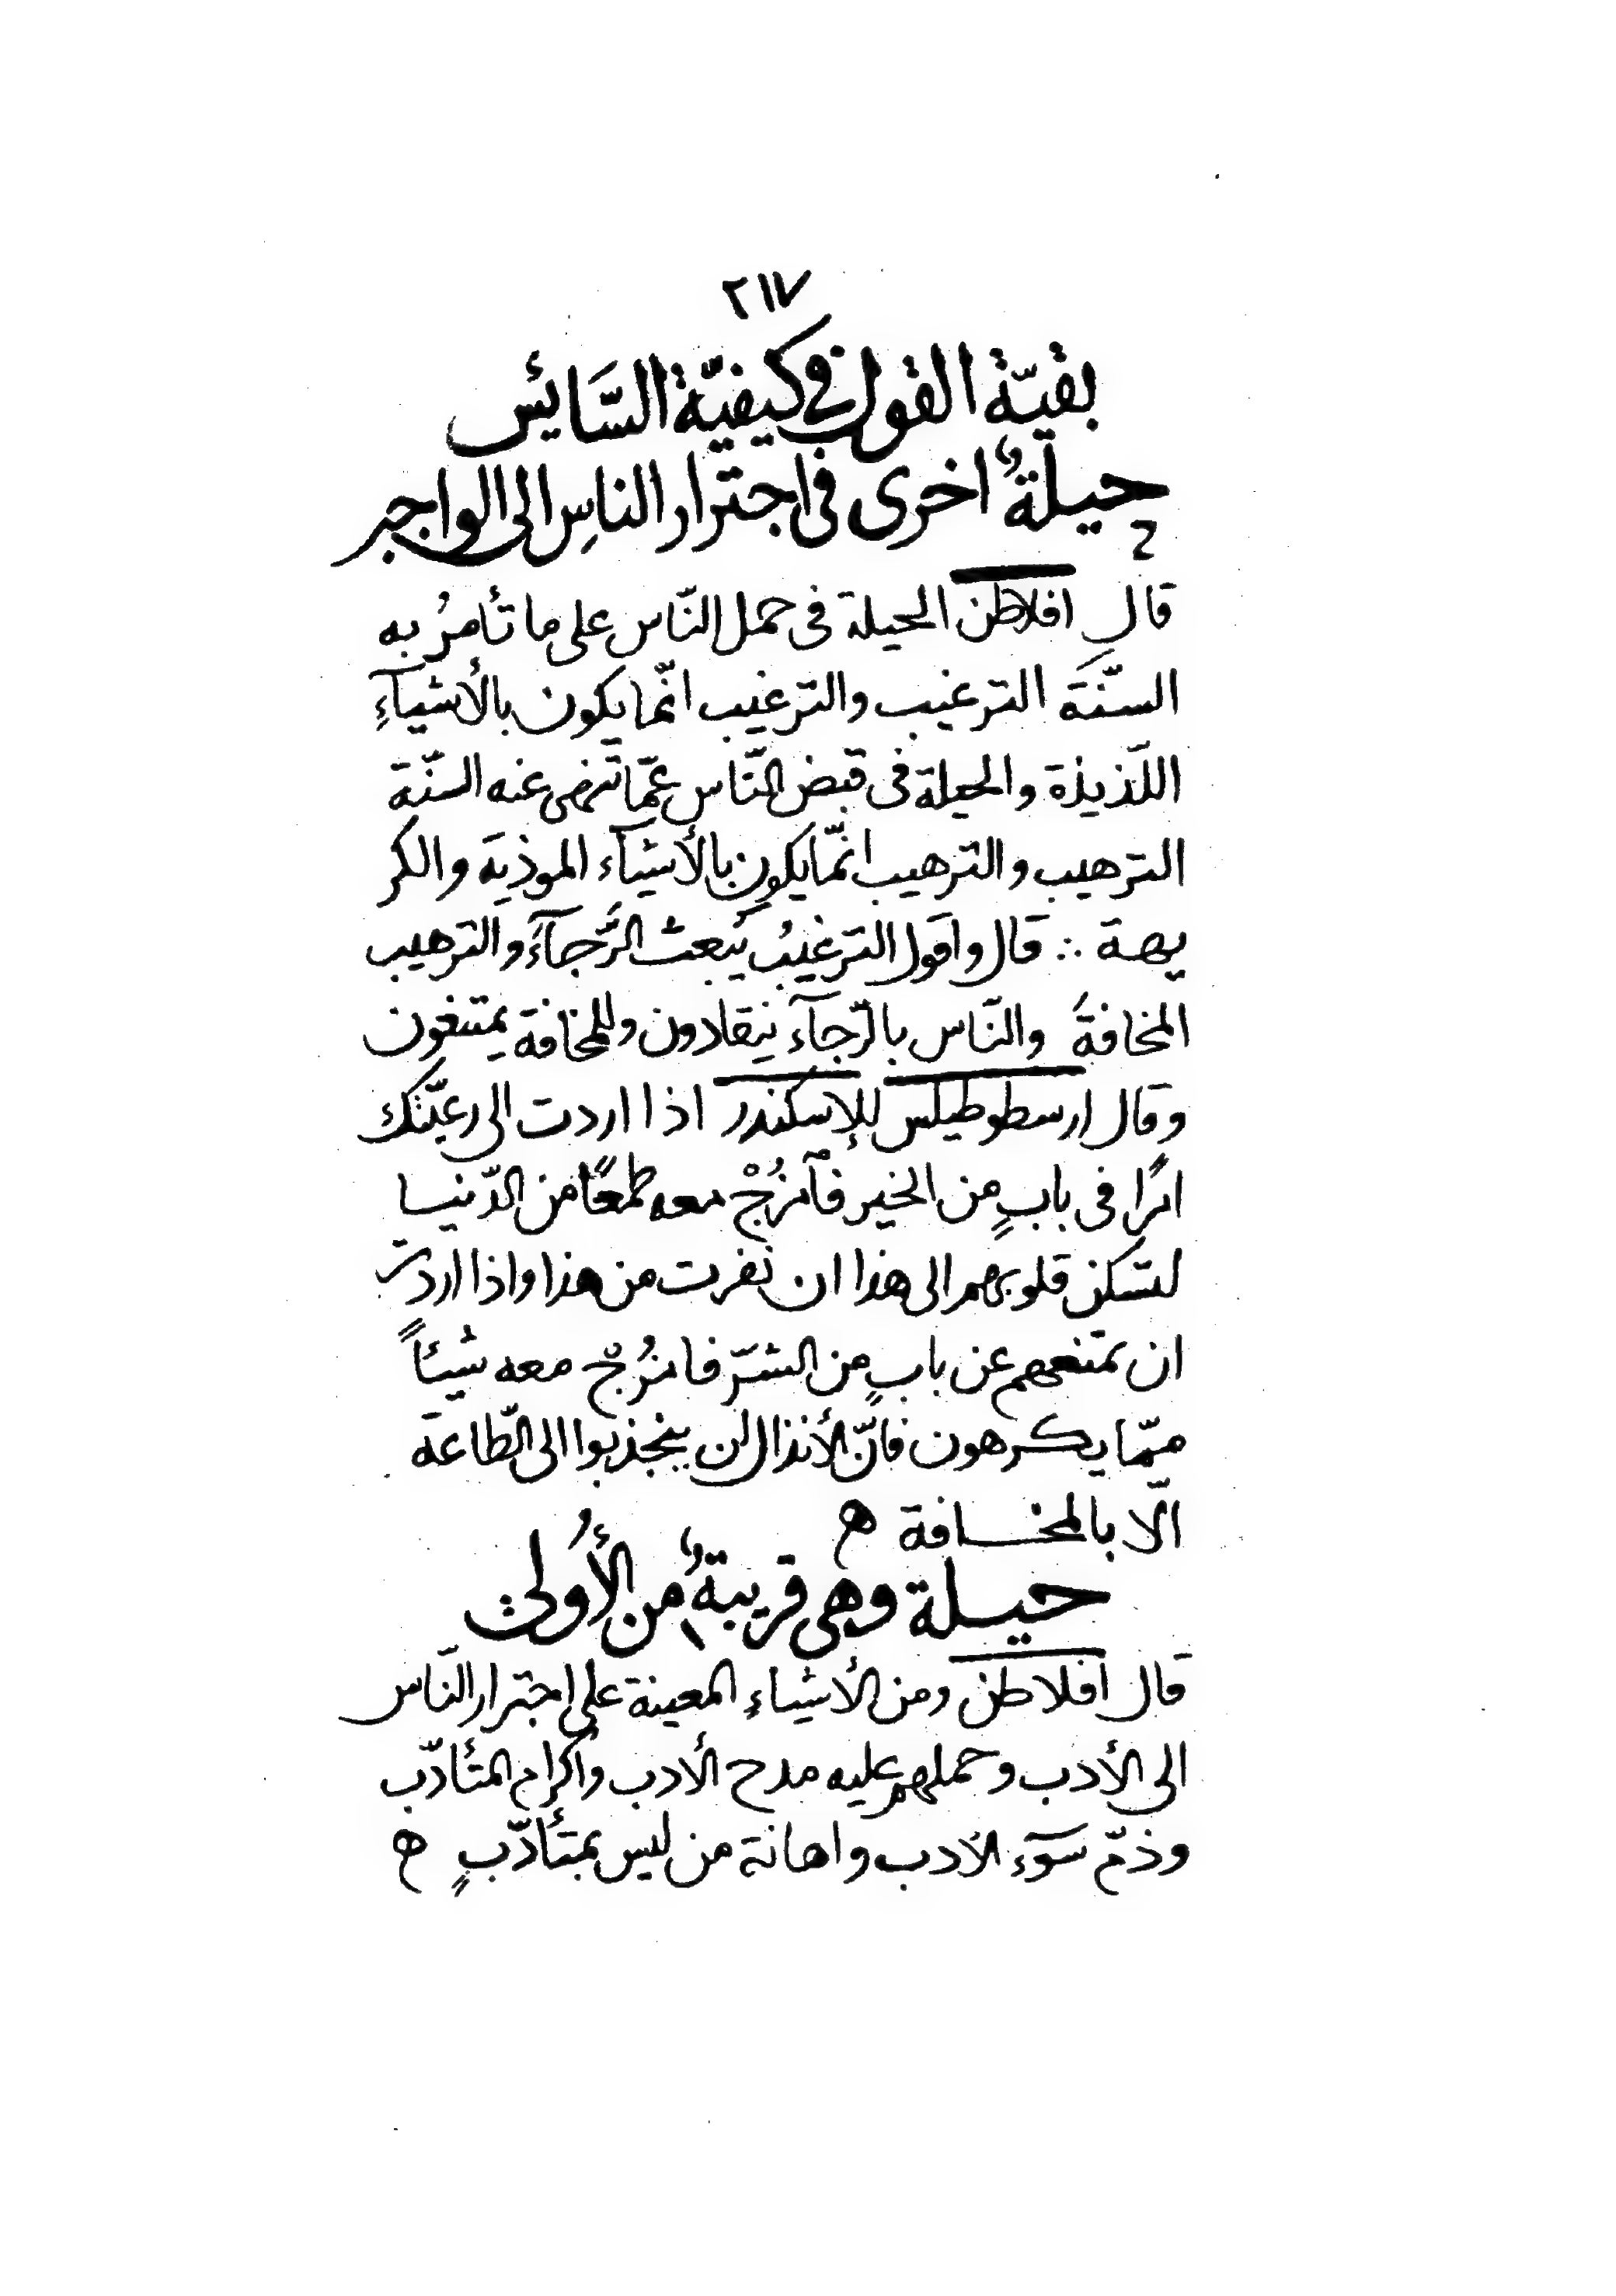 ٢١٧
بقيّة القول في كيفيّة السَّايس
حيلةٌ اخرى فى اجترار الناسِ الى الواجب
قال افلاطن الحيلة فى حمل النّاس على ما تأمرُ به
السنّة الترغيب والترغيب انّما يكون بالأشيآءِ
اللّذيذة والحيلة فى قبض النّاس عمّا تنهى عنه السنّة
الترهيب والترهيب انّما يكون بالأشيآء الموذية والكر
يهة ∴ قال واقول الترغيبُ يبعث الرَّجآءَ والترهيب
المخافةَ والنّاس بالرّجآء ينقادون وللمخافة يمتنعون
وقال ارسطوطيلس للإسكندر اذا اردت الى رعيّتك
امرًا فى بابٍ من الخير فآمزُجْ معه طمعًا من الدّنيا
لتسكن قلوبهم الى هذا ان نفرت من هذا واذا اردت
ان تمنعهم عن بابٍ من الشرّ فامزُجْ معه شيئاً
ممّا يكرهون فانّ الأنذال لن ينجذبوا الى الطّاعة
الّا بالمخافة ه
حيلة وهى قريبةٌ من الأُولى
قال افلاطن ومن الأشياءِ المعينة على اجترار النّاس
الى الأدب وحملهم عليه مدح الأدب واكرام المتأدّب
وذمّ سوٓء الأدب واهانة من ليس بمتأدّبٍ ه